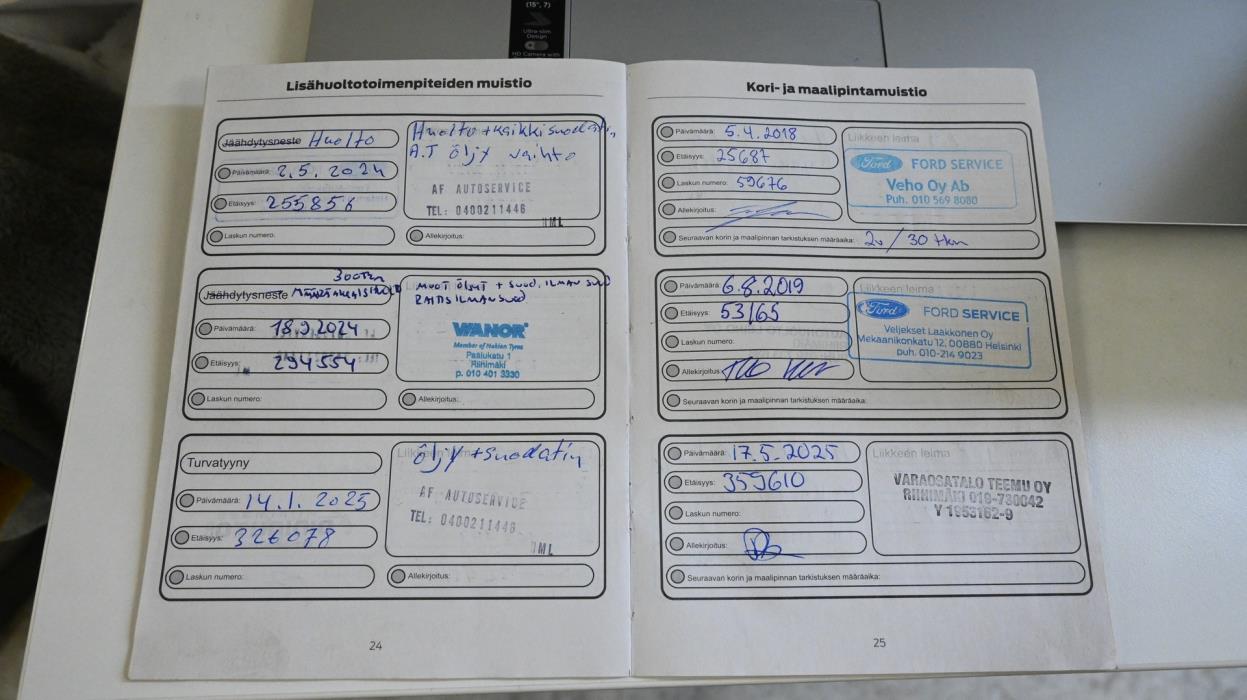 (15", 7)
Ultra-slim
Design
HD Camera with
Lisähuoltotoimenpiteiden muistio
Jäähdytysneste Huolto
Päivämäärä: 2.5.2024
Etäisyys: 255856
Laskun numero:
Huolto + kaikki suodatin
A.T öljy vaihto
AF AUTOSERVICE
TEL: 0400211446
HML
Allekirjoitus:
300TKM
Jäähdytysneste
Päivämäärä: 18.9.2024
Etäisyys: 294554
Laskun numero:
MUOT ÖLJYT + SUOD, ILMAN SUOD
RAITISILMANSUOD
WANOR
Member of Nokian Tyres
Paalukatu 1
Riihimäki
p. 010 401 3330
Allekirjoitus:
Turvatyyny
Päivämäärä: 14.1.2025
Etäisyys: 326078
Laskun numero:
Liikkeen leima
öljy + suodatin
AF AUTOSERVICE
TEL: 0400211446
HML
Allekirjoitus:
24
Kori- ja maalipintamuistio
Päivämäärä: 5.4.2018
Etäisyys: 25687
Laskun numero: 59676
Allekirjoitus:
Liikkeen leima
Ford FORD SERVICE
Veho Oy Ab
Puh. 010 569 8080
Seuraavan korin ja maalipinnan tarkistuksen määräaika: 2v / 30 tkm
Päivämäärä: 6.8.2019
Etäisyys: 53165
Laskun numero:
Allekirjoitus:
Liikkeen leima
Ford FORD SERVICE
Veljekset Laakkonen Oy
Mekaanikonkatu 12, 00880 Helsinki
puh. 010-214 9023
Seuraavan korin ja maalipinnan tarkistuksen määräaika:
Päivämäärä: 17.5.2025
Etäisyys: 359610
Laskun numero:
Allekirjoitus:
Liikkeen leima
VARAOSATALO TEEMU OY
RIIHIMÄKI 019-730042
Y 1953162-9
Seuraavan korin ja maalipinnan tarkistuksen määräaika:
25